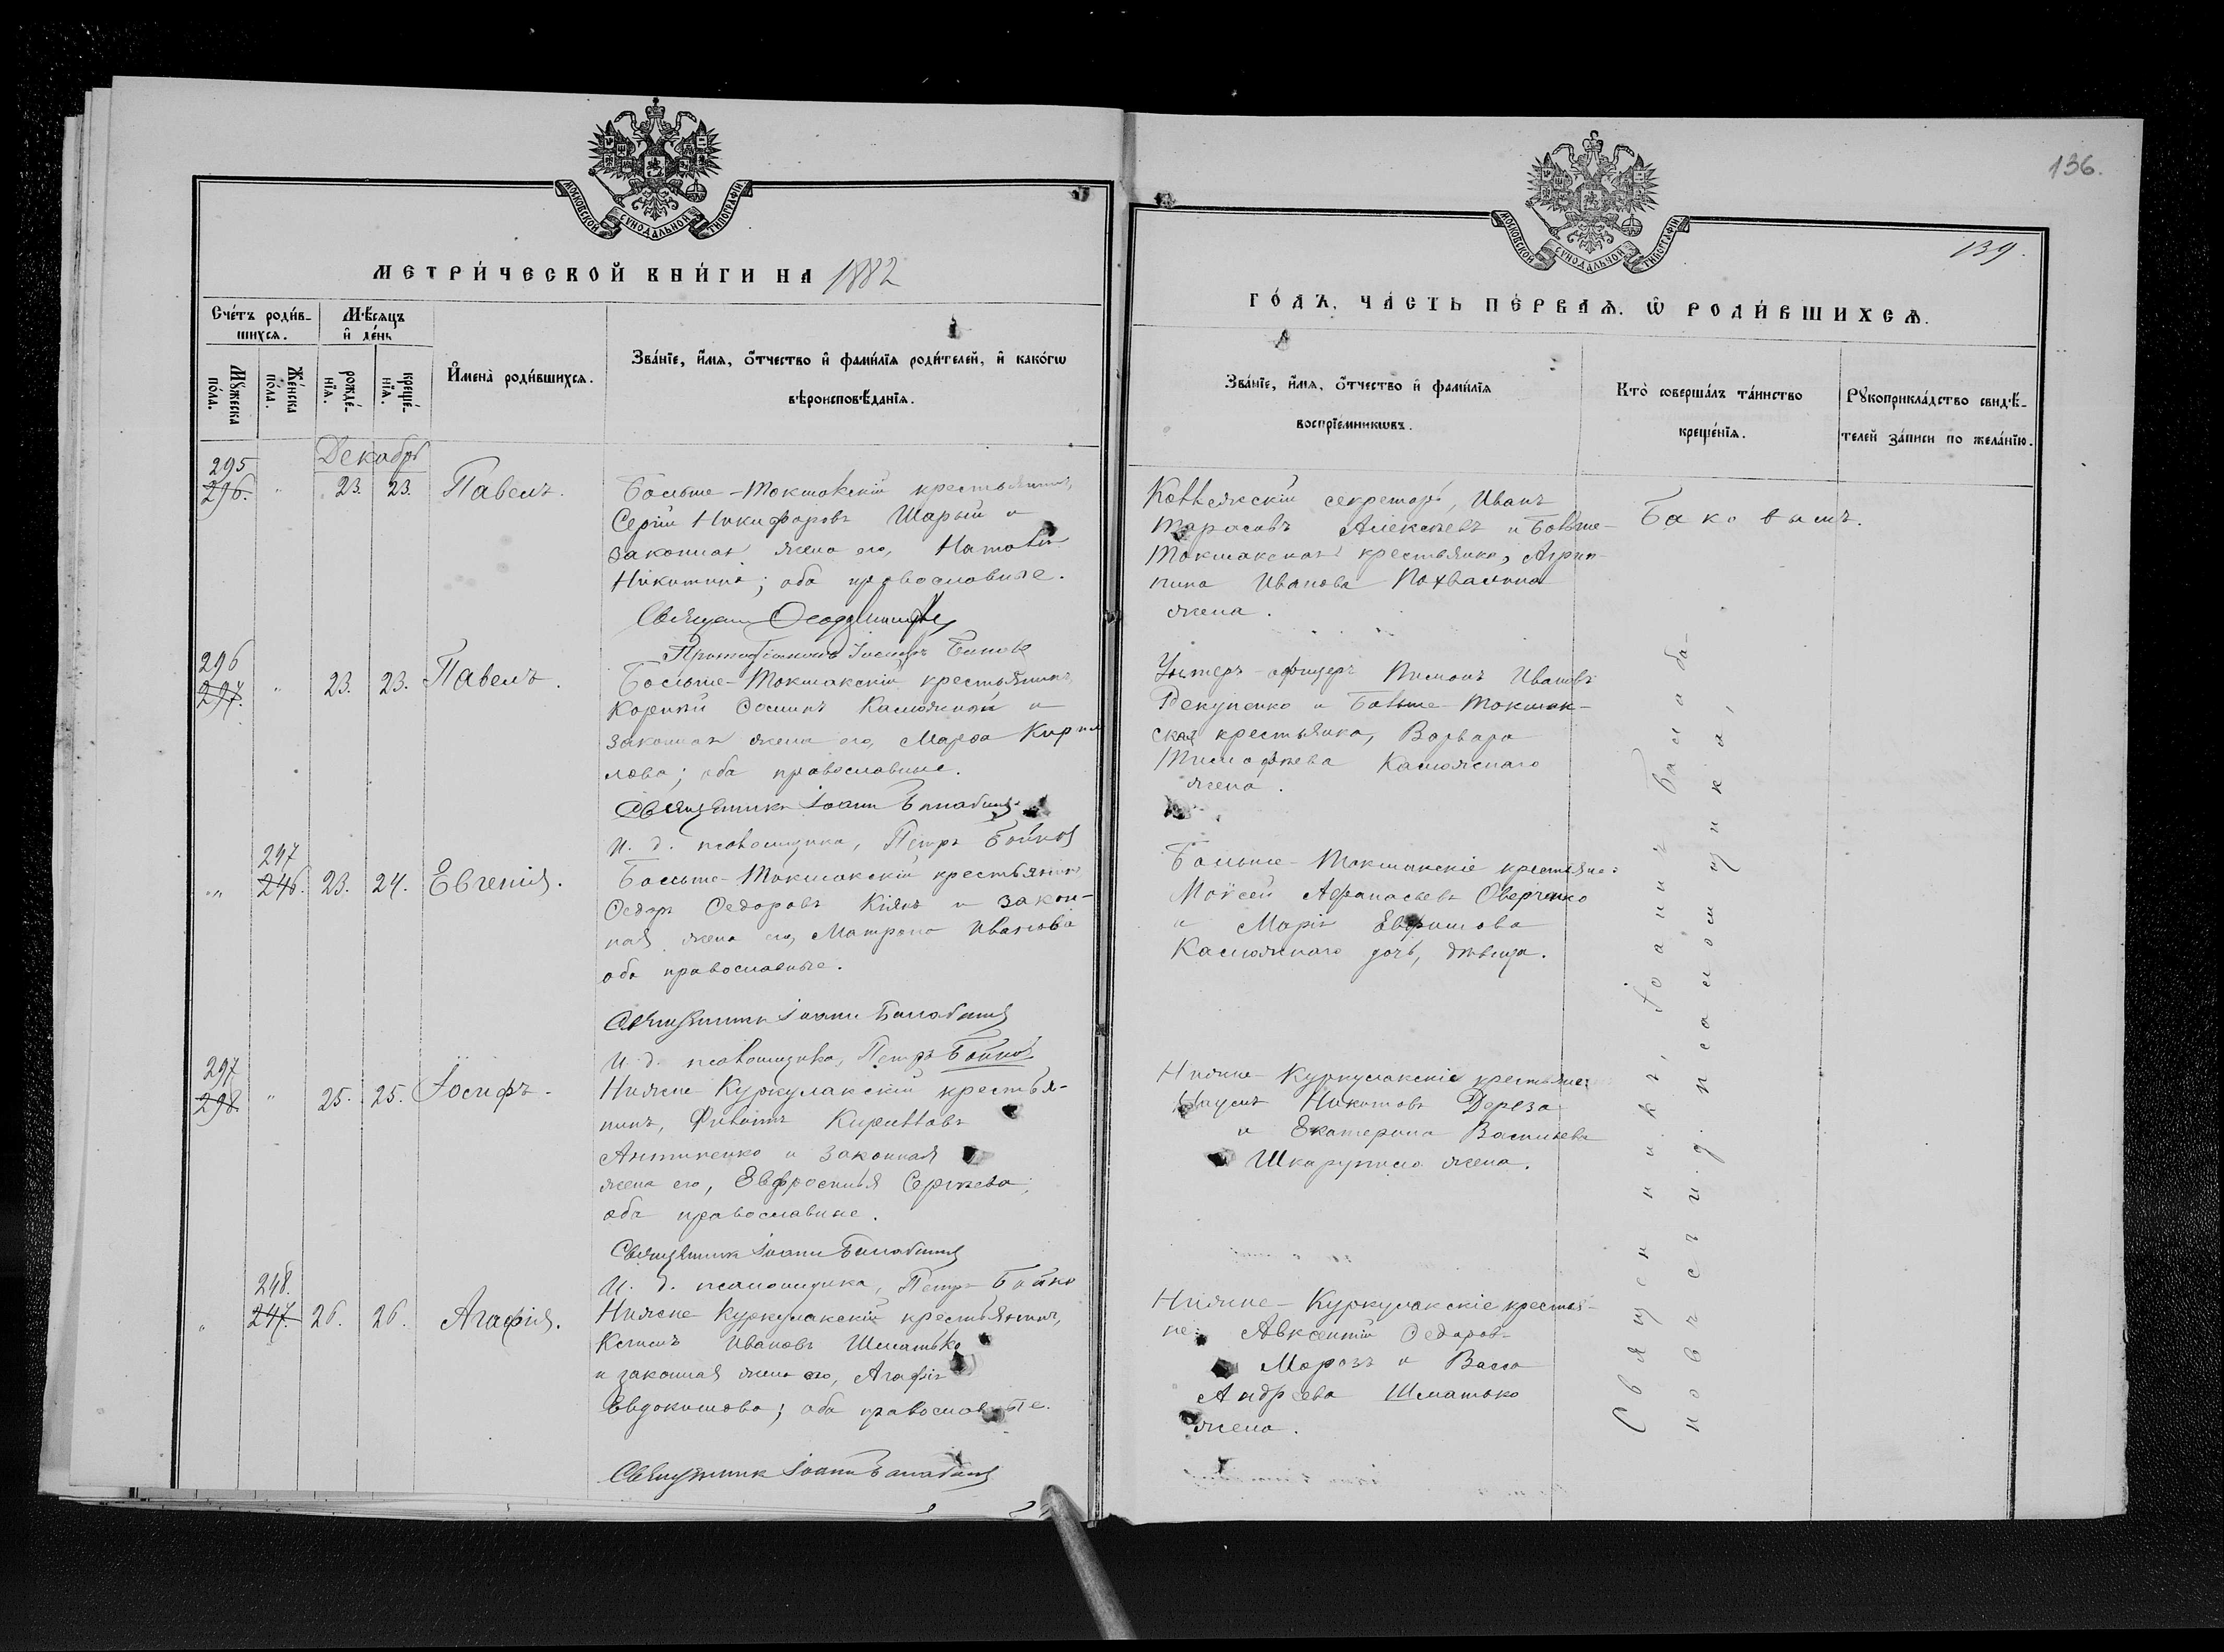 МОСКОВСКОЙ СѴНОДАЛЬНОЙ ТИПОГРАФІИ
МЕТРИ́ЧЕСКОЙ КНИ́ГИ НА 1882
Сче́тъ роди́в-
шихся.
Мѣ́сяцъ
и҆ де́нь
Мꙋ́жеска
по́ла.
Же́нска
по́ла.
рожде́-
нїѧ.
креще́-
нїѧ.
И҆мена̀ роди́вшихся.
Зва́нїе, и҆́мя, ѻ҆́тчество и҆ фами́лїя роди́телей, и҆ како́гѡ
вѣроисповѣ́данїя.
Декабрь
295
296.
"
23.
23.
Павелъ.
Больше-Токмакскій крестьянинъ,
Сергій Никифоровъ Шарый и
законная жена его, Наталія
Никитина; оба православные.
296
297.
"
23.
23.
Павелъ.
Больше-Токмакскій крестьянинъ,
Касюяжный и
законная жена его, Марѳа Кирил
лова; оба православные.
Священникъ Іоаннъ Балабаній
И. д. псаломщика, Петръ Бойко
"
297
246.
23.
24.
Евгенія.
Больше-Токмакскій крестьянинъ
Ѳедоръ Ѳедоровъ Кіянъ и закон-
ная жена его, Матрона Иванова
оба православные.
Священникъ Іоаннъ Балабаній
И. д. псаломщика, Петръ Бойко
297
298
"
25.
25.
Іосифъ.
Нижне-Куркулакскій крестья-
нинъ, Филиппъ Кирилловъ
Антипенко и законная
жена его, Евфросинія Сергѣева;
оба православные.
Священникъ Іоаннъ Балабаній
И. д. псаломщика, Петръ Бойко
"
248.
247.
26.
26.
Агафія.
Нижне-Куркулакскій крестьянинъ,
Ивановъ Шматько
и законная жена его, Агафія
Евдокимова; оба православные.
Священникъ Іоаннъ Балабаній
136.
МОСКОВСКОЙ СѴНОДАЛЬНОЙ ТИПОГРАФІИ
139.
ГО́ДЪ, ЧА́СТЬ ПЕ́РВАЯ. Ѡ҆ РОДИ́ВШИХСЯ.
Зва́нїе, и҆́мя, ѻ҆́тчество и҆ фами́лїя
воспрїе́мникѡвъ.
Кто̀ соверша́лъ та́инство
креще́нїя.
Рꙋкоприкла́дство свидѣ́-
телей за́писи по жела́нїю.
Коллежскій секретарь, Иванъ
Тарасовъ Алексѣевъ и Больше-
Токмакская крестьянка, Агрип-
пина Иванова Похвалина
жена.
Баковымъ.
Унтеръ-офицеръ Пименъ Ивановъ
Рекуненко и Больше-Токмак-
ская крестьянка, Варвара
Тимофѣева Касюяжнаго
жена.
Больше-Токмакскіе крестьяне:
Моѵсей Афанасьевъ Оверченко
и Марія Евфимова
Касюяжнаго дочь, дѣвица.
Нижне-Куркулакскіе крестьяне:
Наумъ Никитовъ Дереза
и Екатерина Васильева
Шкарупина жена.
Нижне-Куркулакскіе крестья-
не: Авксентій Ѳедоровъ
Морозъ и Васса
Андреева Шматько
жена.
Священникъ Іоаннъ Балаба-
новъ съ и. д. псаломщика,